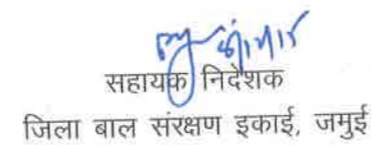 सहायक निर्देशक
जिला बाल संरक्षण इकाई, जमुई